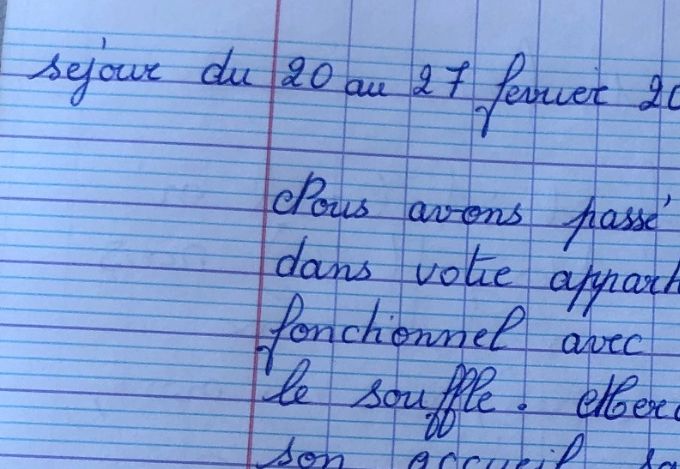 séjour du 20 au 27 fevrier 20
Nous avons passé
dans votre appart
fonctionnel avec
le souffle. Merc
son accueil sa